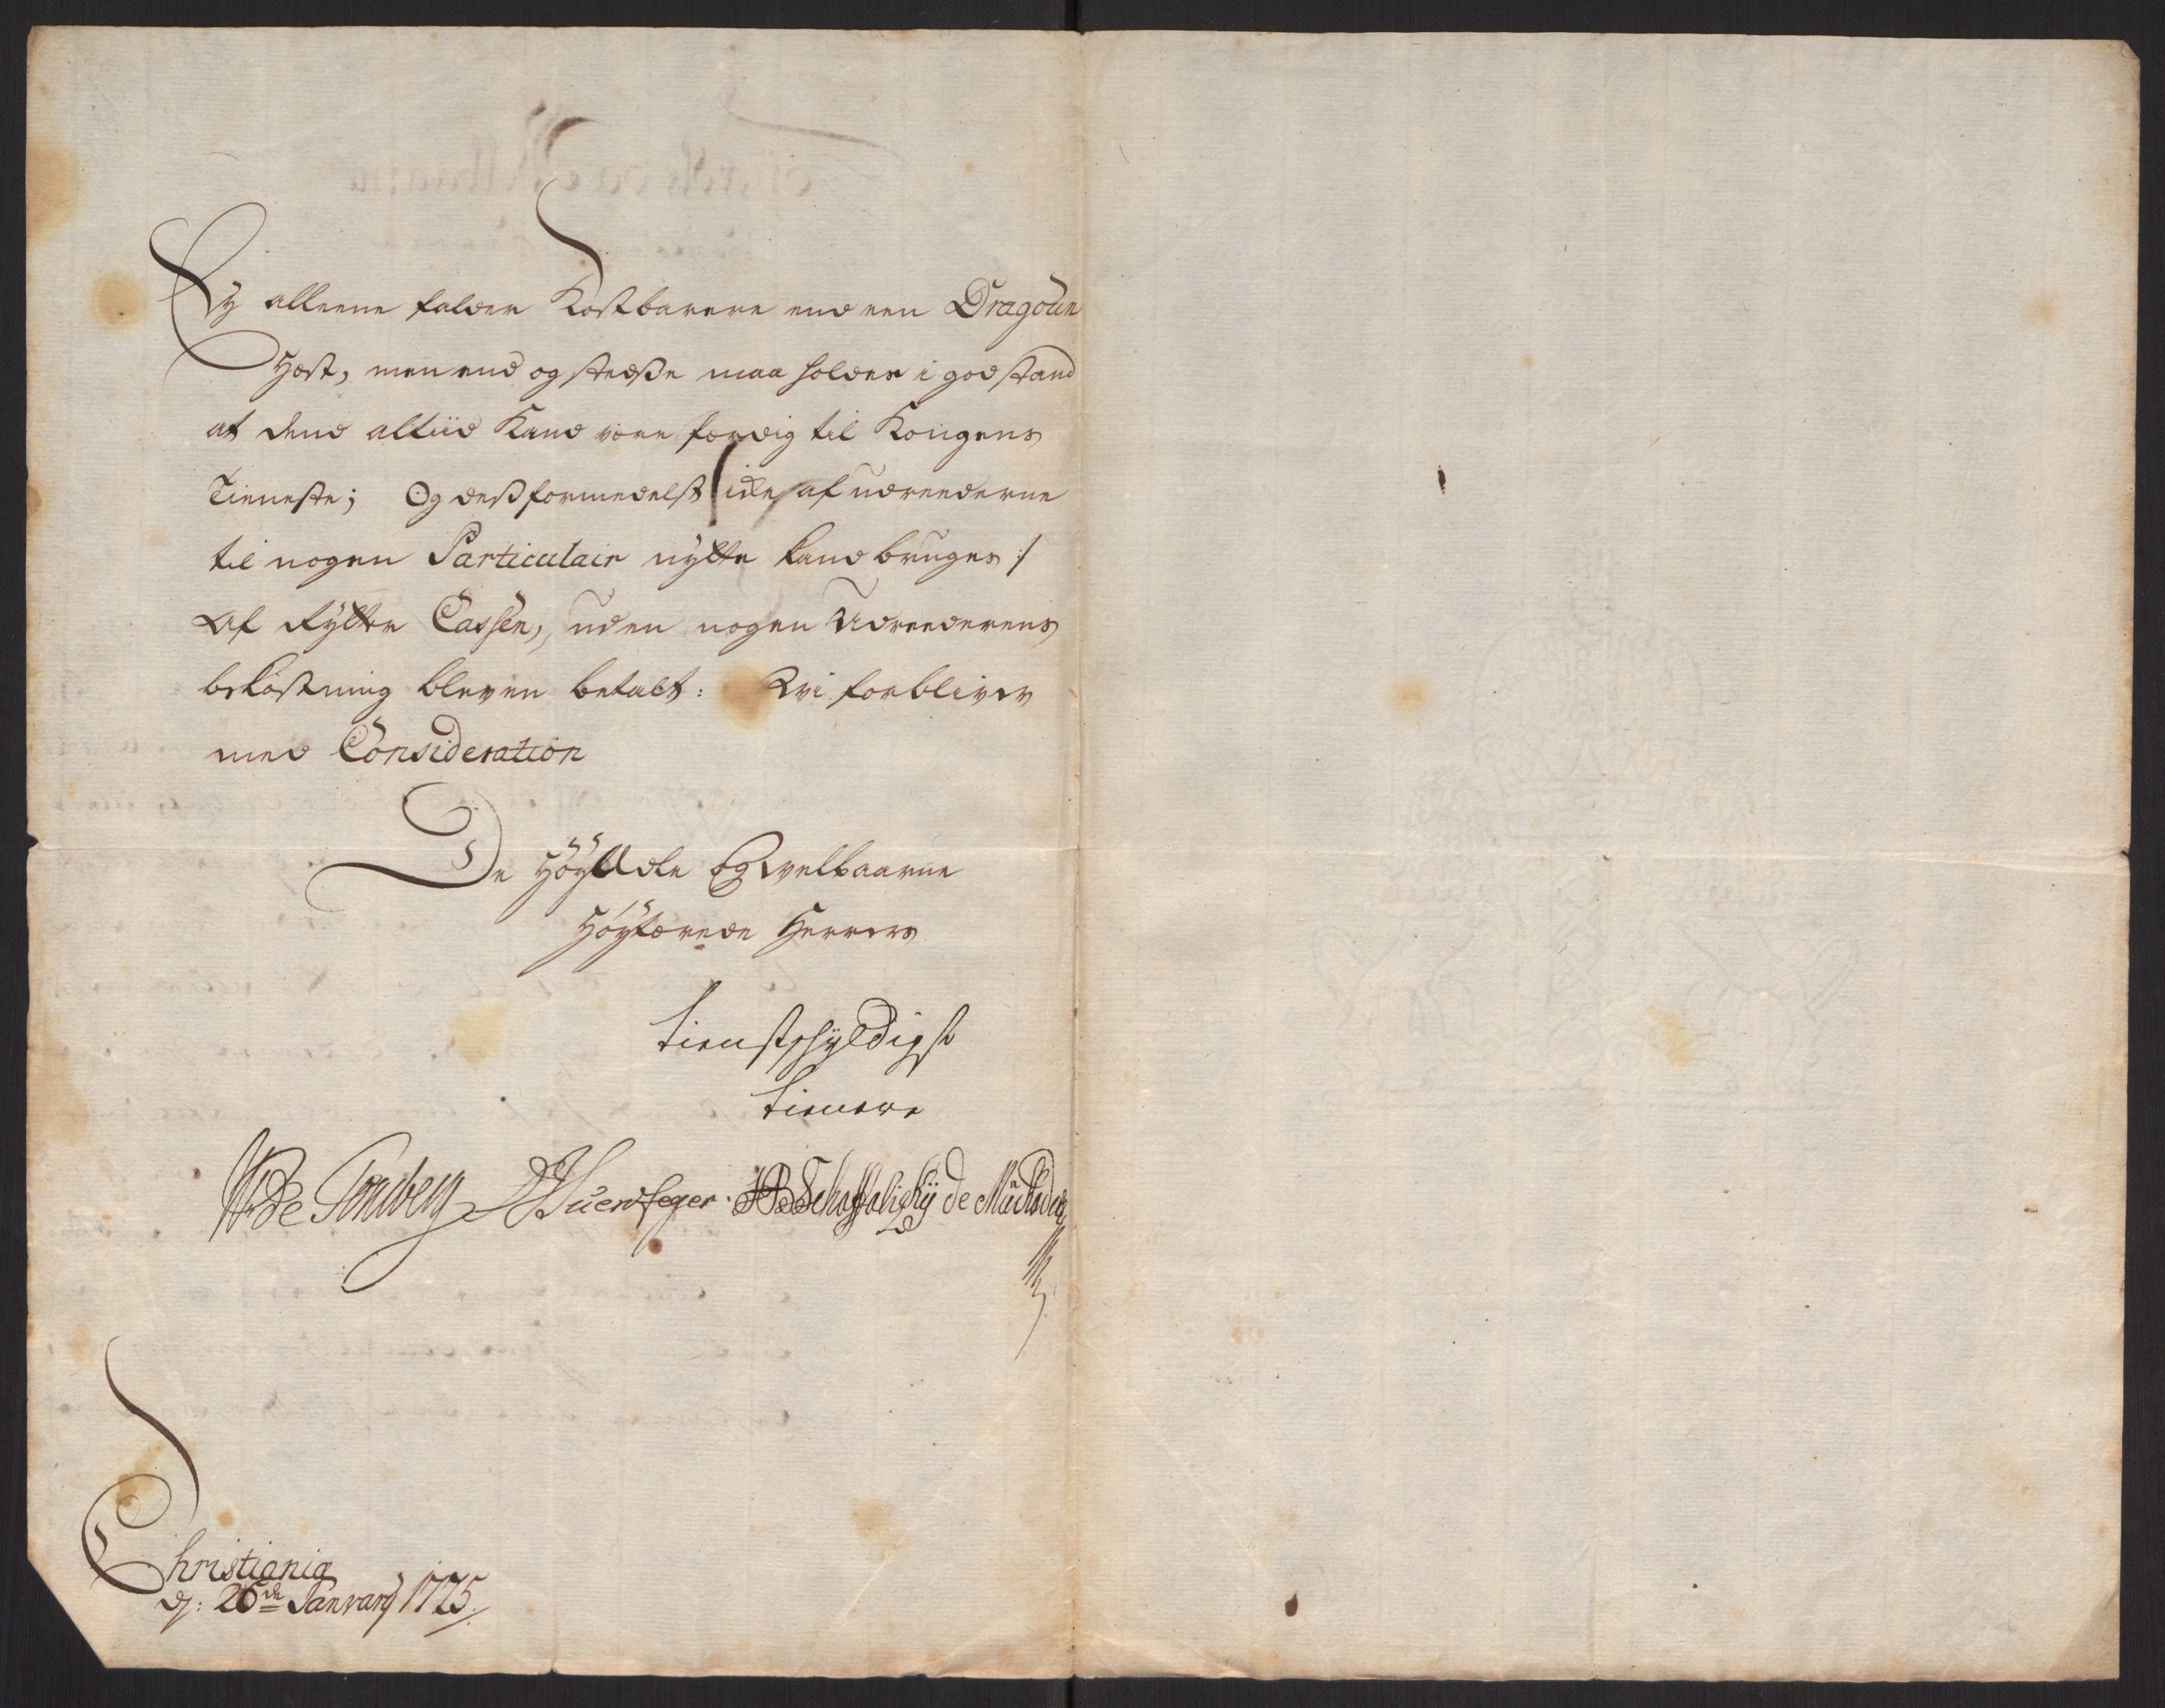 Ey alleene falder Kostbarere end een Dragoun
Hæst, men end og stedße maa holdes i god stand
at dend altiid Kand være færdig til Kongens
Tieneste; Og deßformedelst /: ide af udreederne
til nogen Particulair nytte kand bruges :/
Af Rytter Cassen, uden nogen Udreederens
bekostning bleven betalt: Wi forbliver
med Consideration
De HøyEdle Og Velbaarne
Høytærede Herrers
tienstschyldigste
tienere
de Tonsberg Huerdfeger. Schaffalisky de Muckadell
Christiania
d: 26de Januarÿ 1725